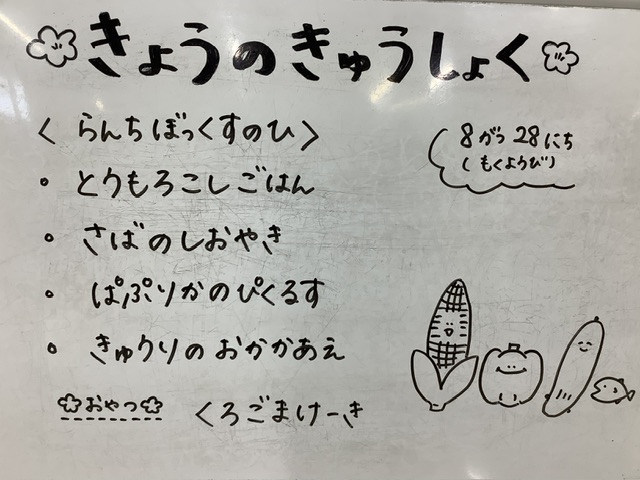 きょうのきゅうしょく
〈 らんちぼっくすのひ 〉
8がつ 28にち
(もくようび)
・とうもろこしごはん
・さばのしおやき
・ぱぷりかのぴくるす
・きゅうりのおかかあえ
おやつ くろごまけーき